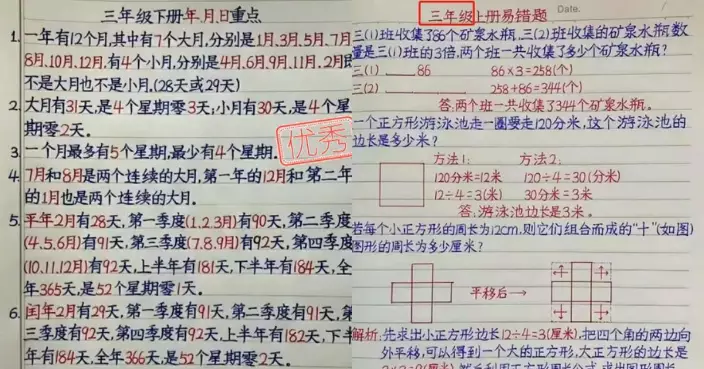 三年级下册年、月、日重点
1. 一年有12个月,其中有7个大月,分别是1月、3月、5月、7月
8月、10月、12月。有4个小月,分别是4月、6月、9月、11月。2月
不是大月也不是小月。(28天或29天)
2. 大月有31天,是4个星期零3天;小月有30天,是4个星
期零2天。
3. 一个月最多有5个星期,最少有4个星期。
优秀
4. 7月和8月是两个连续的大月,第一年的12月和第二年
的1月也是两个连续的大月。
5. 平年2月有28天,第一季度(1.2.3月)有90天,第二季度
(4.5.6月)有91天,第三季度(7.8.9月)有92天,第四季度
(10.11.12月)有92天,上半年有181天,下半年有184天,全
年365天,是52个星期零1天。
6. 闰年2月有29天,第一季度有91天,第二季度有91天,第
三季度有92天,第四季度有92天,上半年有182天,下半
年有184天,全年366天,是52个星期零2天。
三年级上册易错题
Date.
三(1)班收集了86个矿泉水瓶,三(2)班收集的矿泉水瓶数
量是三(1)班的3倍,两个班一共收集了多少个矿泉水瓶?
三(1) 86 86×3=258(个)
三(2) 258+86=344(个)
答:两个班一共收集了344个矿泉水瓶。
一个正方形游泳池走一圈要走120分米,这个游泳池的
边长是多少米?
方法1: 方法2:
120分米=12米 120÷4=30(分米)
12÷4=3(米) 30分米=3米
答:游泳池边长是3米。
若每个小正方形的周长为12cm,则它们组合而成的“十”(如图)
图形的周长为多少厘米?
平移后→
解析:先求出小正方形边长12÷4=3(厘米),把四个角的两边向
外平移,可以得到一个大的正方形,大正方形的边长是